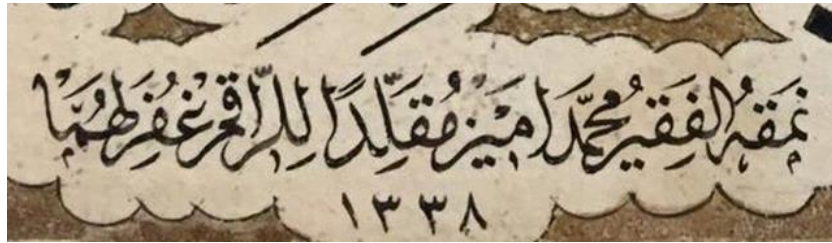 نَمَقَهُ الفَقِيرُ مُحَمَّد اَمِين مُقَلِّدًا لِلرَّاقِم غُفِرَ لَهُمَا
١٣٣٨